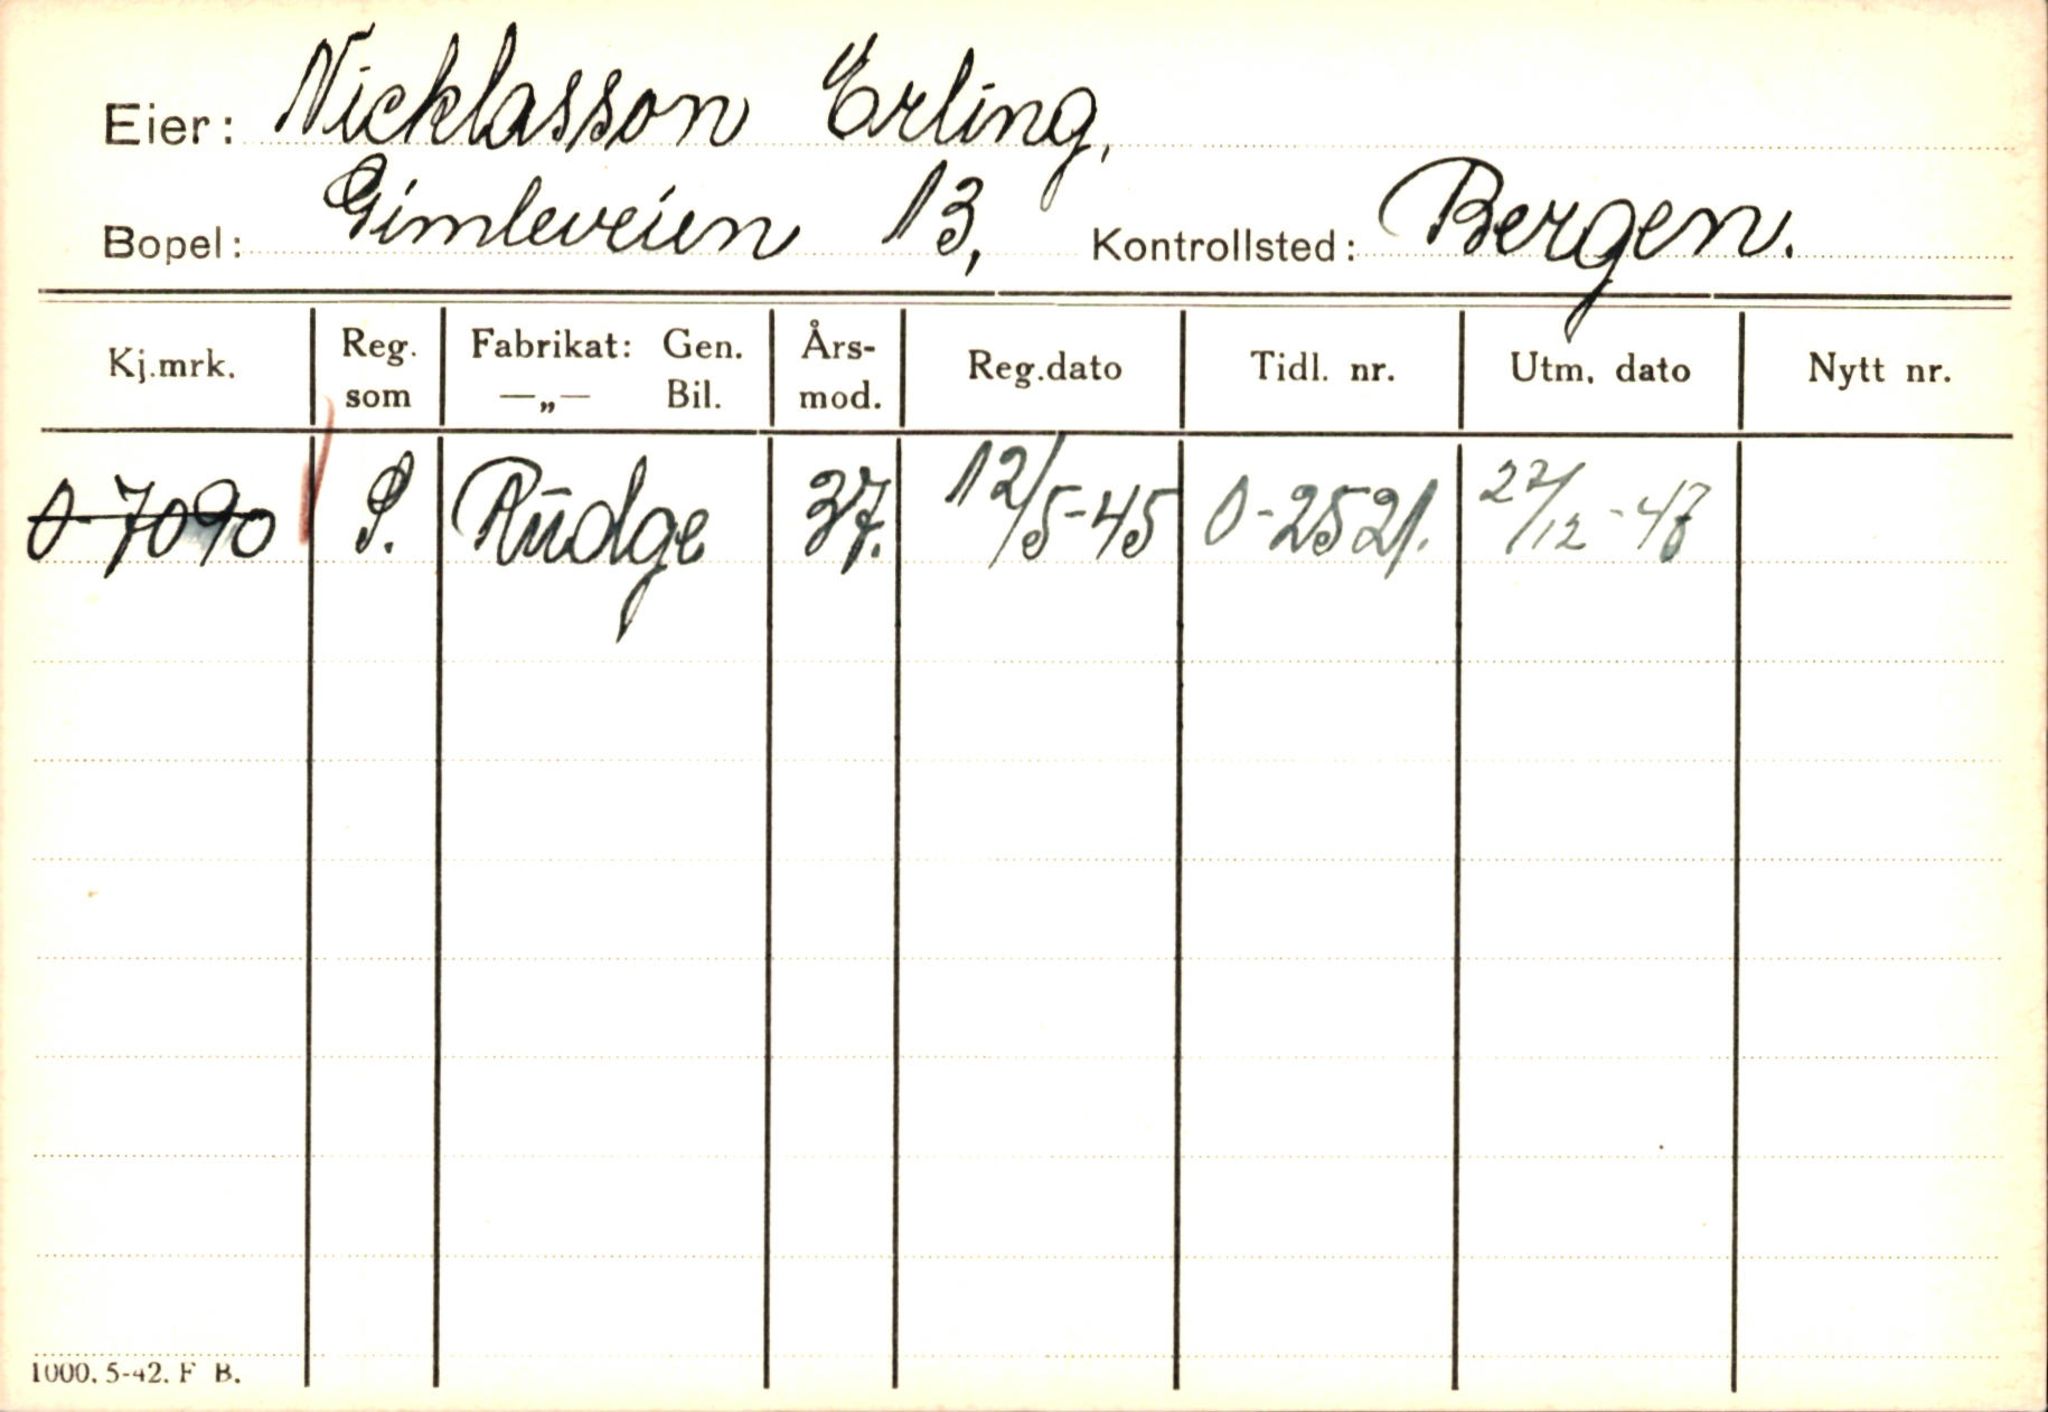 Eier: Nicklasson Erling,
Bopel: Gimleveien 13, Kontrollsted: Bergen.
Kj.mrk. Reg. som Fabrikat: Gen. —„— Bil. Års- mod. Reg.dato Tidl. nr. Utm. dato Nytt nr.
O-7090 P. Rudge 37. 12/5-45 O-2521. 22/12-47
1000. 5-42. F B.